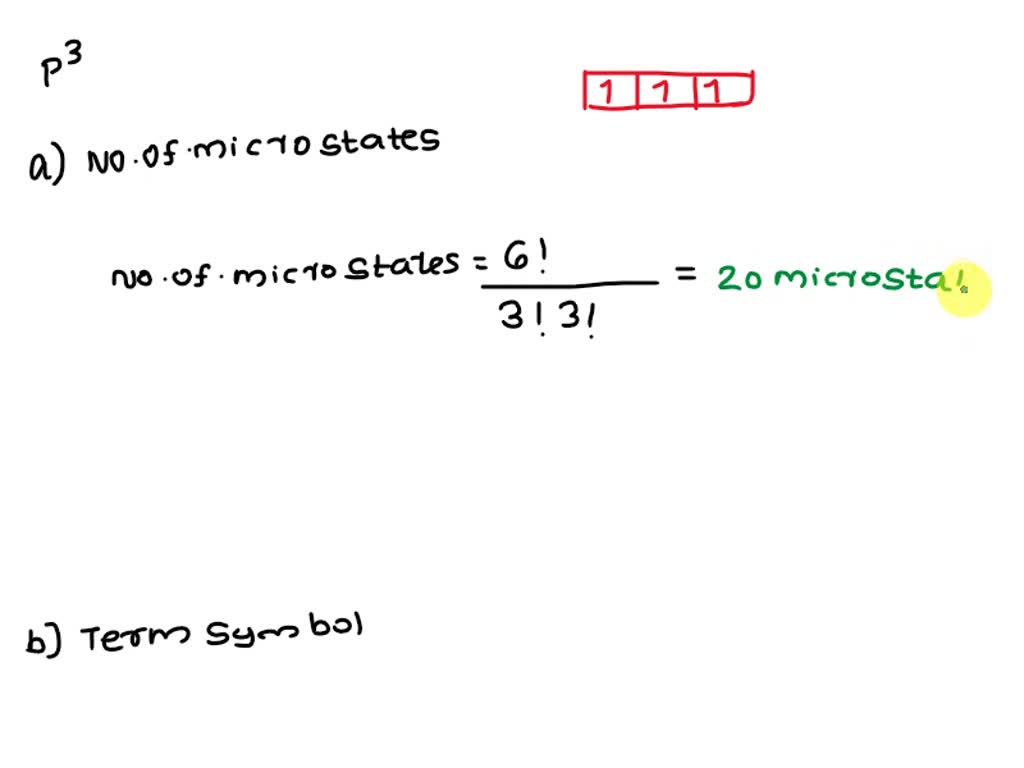 P³
1 1 1
a) No. of. microstates
No. of. microstates = 6! / 3! 3! = 20 microsta
b) Term Symbol